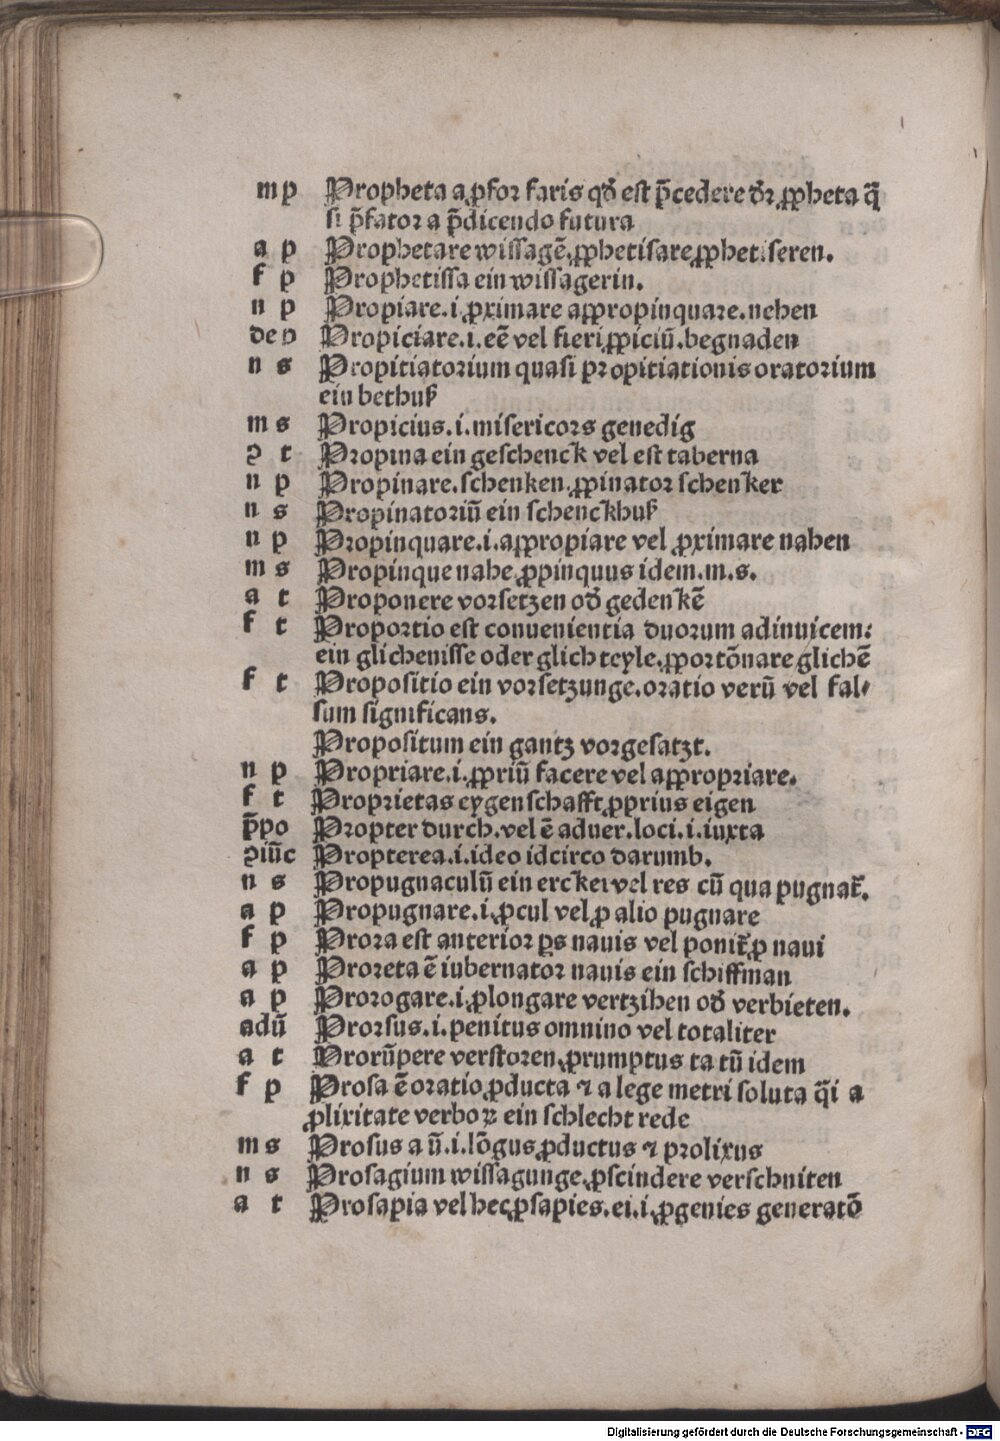 m p Propheta a ꝓfor faris qđ est p̃cedere đr ꝓpheta q̃
si p̃fator a p̃dicendo futura
a p Prophetare wissagẽ ꝓphetisare ꝓphetiseren.
f p Prophetissa ein wissagerin.
n p Propiare.i.ꝓximare aꝓpropinquare.nehen
de p Propiciare.i.eẽ vel fieri ꝓpiciũ.begnaden
n s Propitiatorium quasi propitiationis oratorium
ein bethuß
m s Propicius.i.misericors genedig
ꝯ t Propina ein geschenck vel est taberna
n p Propinare.schenken.ꝓpinator schencker
n s Propinatoriũ ein schenckhuß
n p Propinquare.i.aꝓpropiare vel ꝓximare nahen
m s Propinque nahe ꝓpinquus idem.m.s.
a t Proponere vorsetzen ođ gedenckẽ
f t Proportio est conuenientia duorum adinuicem:
ein glichenisse oder glich teyle.ꝓportõnare glichẽ
f t Propositio ein vorsetzunge.oratio verũ vel fal⸗
sum significans.
Propositum ein gantz vorgesatzt.
n p Propriare.i.ꝓpriũ facere vel aꝓpropriare.
f t Proprietas eygenschafft ꝓprius eigen
p̃po Propter durch.vel ẽ aduer.loci.i.iuxta
ꝯiũc Propterea.i.ideo idcirco darumb.
n s Propugnaculũ ein ercker vel res cũ qua pugnat̃.
a p Propugnare.i.ꝓcul vel ꝓ alio pugnare
f p Prora est anterior ꝑs nauis vel ponit̃ ꝓ naui
a p Proreta ẽ iubernator nauis ein schiffman
a p Prorogare.i.ꝓlongare vertzihen ođ verbieten.
adũ Prorsus.i.penitus omnino vel totaliter
a t Prorũpere verstoren.ꝓrumptus ta tũ idem
f p Prosa ẽ oratio ꝓducta ⁊ a lege metri soluta q̃i a
ꝓlixitate verboꝝ ein schlecht rede
m s Prosus a ũ.i.lõgus ꝓductus ⁊ prolixus
n s Prosagium wissagunge.ꝓscindere verschniten
a t Prosapia vel hec ꝓsapies.ei.i.ꝓgenies generatõ
Digitalisierung gefördert durch die Deutsche Forschungsgemeinschaft - DFG